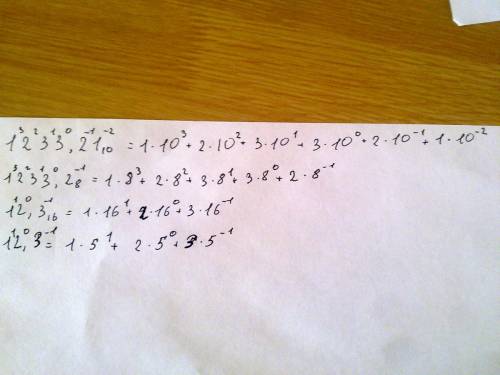 1³2²3¹3⁰,2⁻¹1⁻²₁₀ = 1·10³+2·10²+3·10¹+3·10⁰+2·10⁻¹+1·10⁻²
1³2²3¹3⁰,2⁻¹₈ = 1·8³+2·8²+3·8¹+3·8⁰+2·8⁻¹
1¹2⁰,3⁻¹₁₆ = 1·16¹+2·16⁰+3·16⁻¹
1¹2⁰,3⁻¹ = 1·5¹+ 2·5⁰+3·5⁻¹